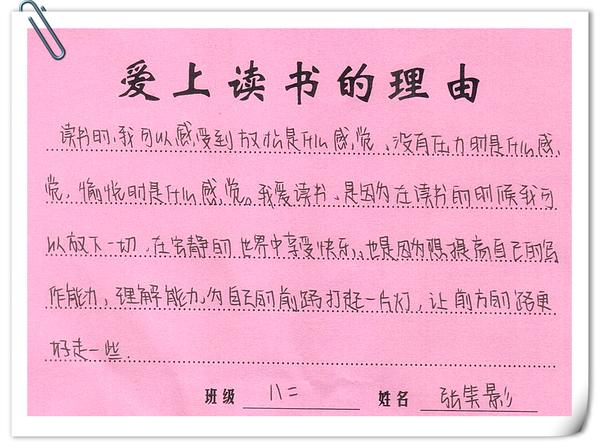 爱上读书的理由
读书时,我可以感受到放松是什么感觉、没有压力时是什么感
觉,愉悦时是什么感觉。我爱读书、是因为在读书的时候我可
以放下一切,在安静的世界中享受快乐、也是因为想提高自己的写
作能力,理解能力,为自己的前路打起一片灯,让前方的路更
好走一些.
班级 八二 姓名 张笑影